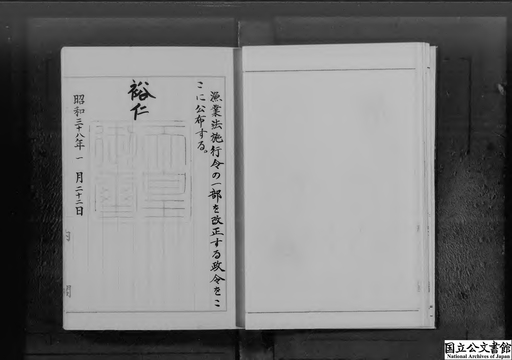 漁業法施行令の一部を改正する政令をこ
こに公布する。
裕仁
天皇
御璽
昭和三十八年一月二十二日
国立公文書館
National Archives of Japan